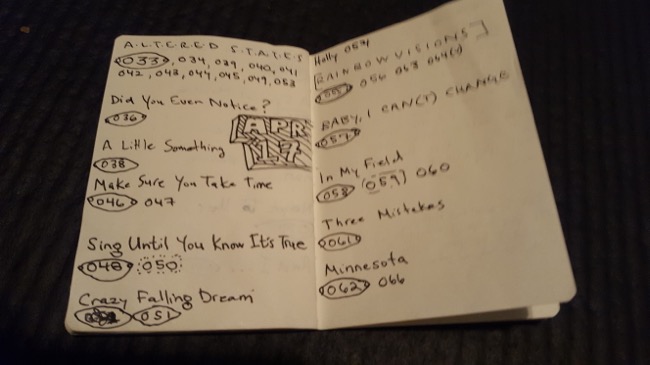 A.L.T.E.R.E.D S.T.A.T.E.S
033, 034, 039, 040, 041
042, 043, 044, 045, 049, 053
Did You Even Notice?
036
A Little Something
038
APR
17
Make Sure You Take Time
046 047
Sing Until You Know It's True
048 050
Crazy Falling Dream
051
Holly 054
[RAINBOW VISIONS]
055 056 063 064(?)
BABY, I CAN(T) CHANGE
057
In My Field
058 (059) 060
Three Mistakes
061
Minnesota
062 066